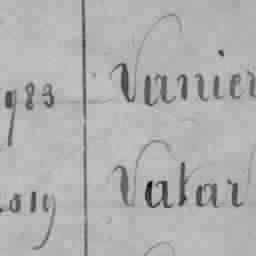 983 Vanier
2019 Vatar